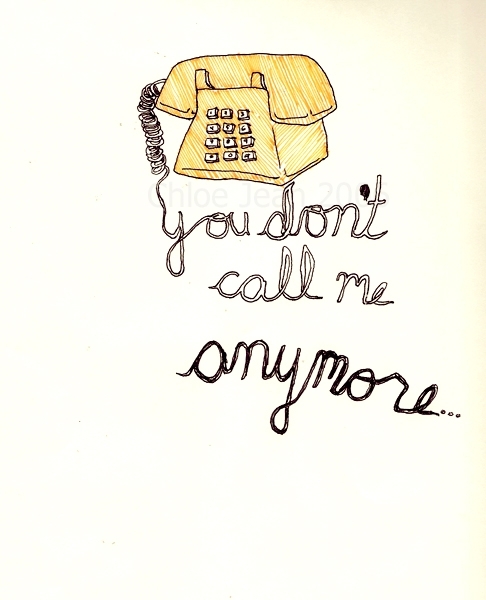 Chloe Jean
you don't
call me
anymore...